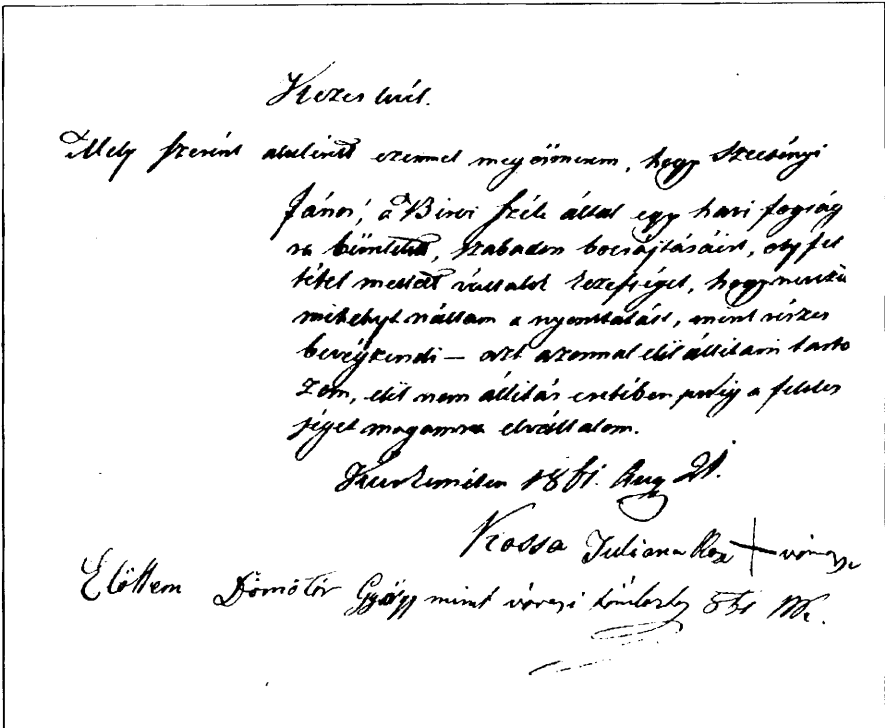 Kezes levél.
Mely szerint alulirott ezennel megösmerem, hogy Szecsényi
János, a Birói Szék által egy havi fogság
ra büntetett, szabadon bocsájtásáért, oly fel
tétel mellett vállalok kezességet, hogy
mihelyt nállam a nyomtatást, mint részes
bevégzendi — azt azonnal elöl állitani tarto
zom, elöl nem állitás esetében pedig a felelös
séget magamra elvállalom.
Kecskeméten 1861. Aug 21.
Kossa Juliana + vonása
Előttem Dömötör György mint városi